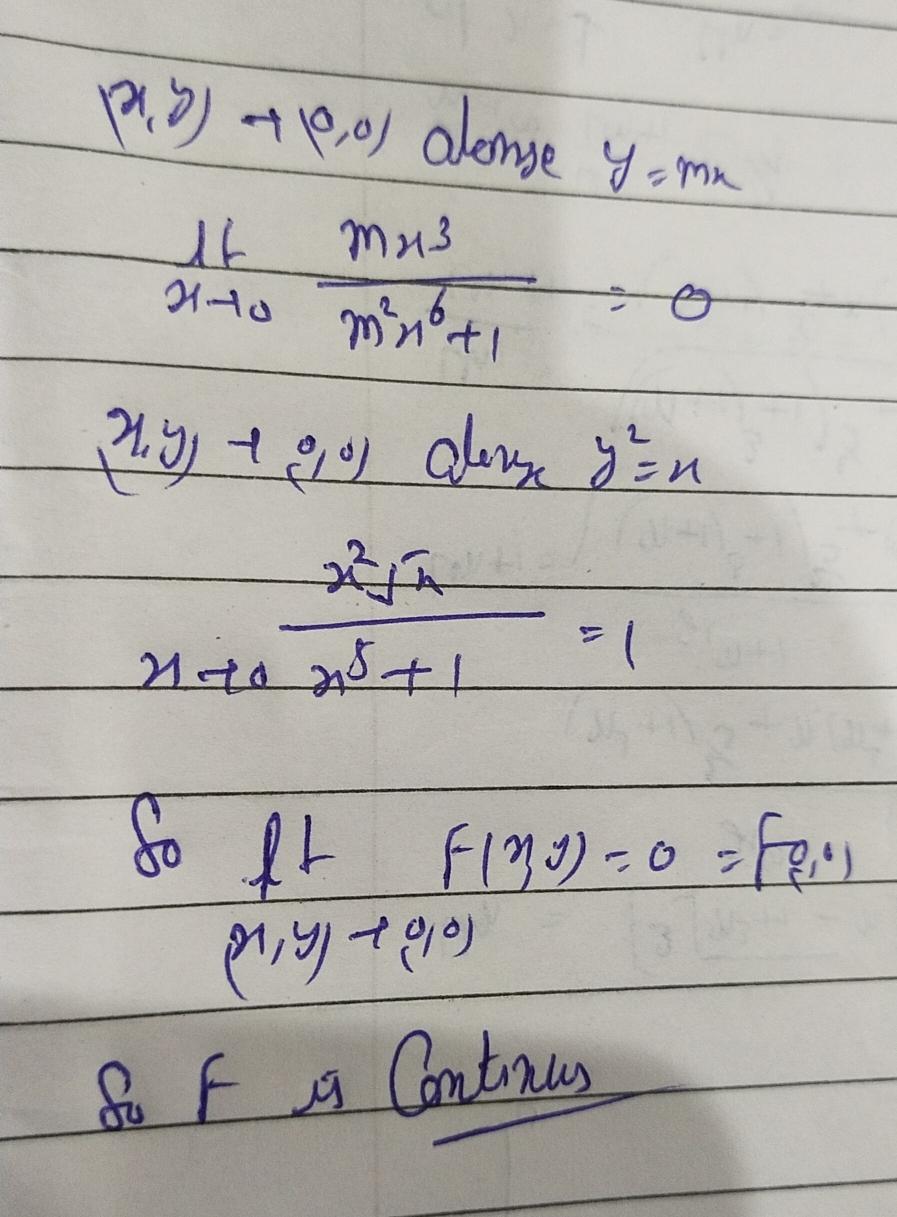 (x,y) → (0,0) alonge y=mx
lt mx³
x→0 m²x⁶+1 = 0
(x,y) → (0,0) along y²=x
x²√x
x→0 x⁵+1 = 1
So lt F(x,y) = 0 = f(0,0)
(x,y) → (0,0)
So F is Continus